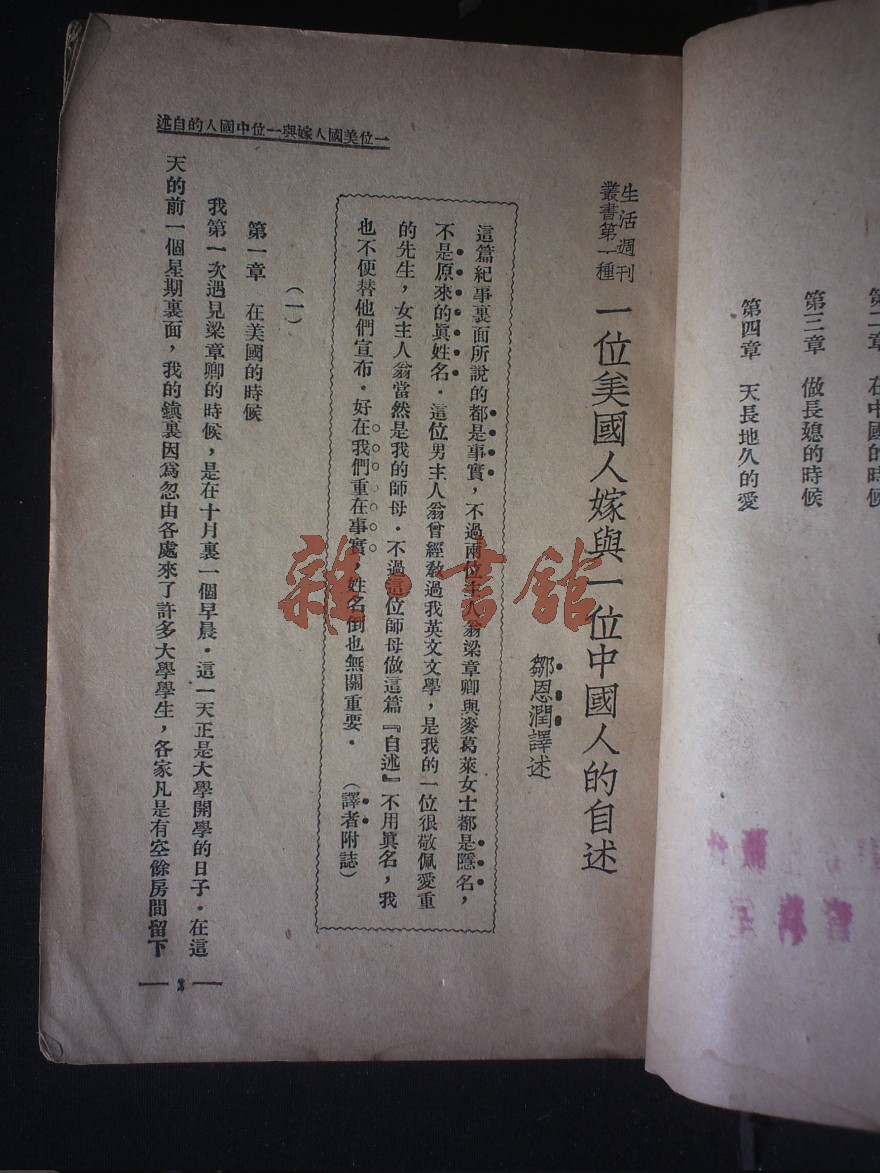 第二章　在中國的時候
第三章　做長媳的時候
第四章　天長地久的愛
一位美國人嫁與一位中國人的自述
生活週刊
叢書第一種
一位美國人嫁與一位中國人的自述
鄒恩潤譯述
這篇紀事裏面所說的都是事實，不過兩位主人翁梁章卿與麥葛萊女士都是隱名，
不是原來的眞姓名．這位男主人翁曾經敎過我英文文學，是我的一位很敬佩愛重
的先生，女主人翁當然是我的師母．不過這位師母做這篇『自述』不用眞名，我
也不便替他們宣布．好在我們重在事實，姓名倒也無關重要．　（譯者附誌）
（一）
第一章　在美國的時候
我第一次遇見梁章卿的時候，是在十月裏一個早晨．這一天正是大學開學的日子．在這
天的前一個星期裏面，我的鎭裏因爲忽由各處來了許多大學學生，各家凡是有空餘房間留下
雜·書舘